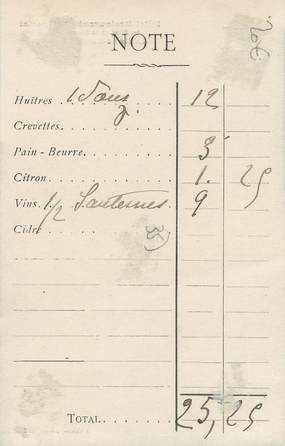 NOTE
Huîtres 1 douz. 12
Crevettes
Pain - Beurre 3
Citron 1. 25
Vins. 1/2 Sauternes. 9
Cidre
35
Total 25,25